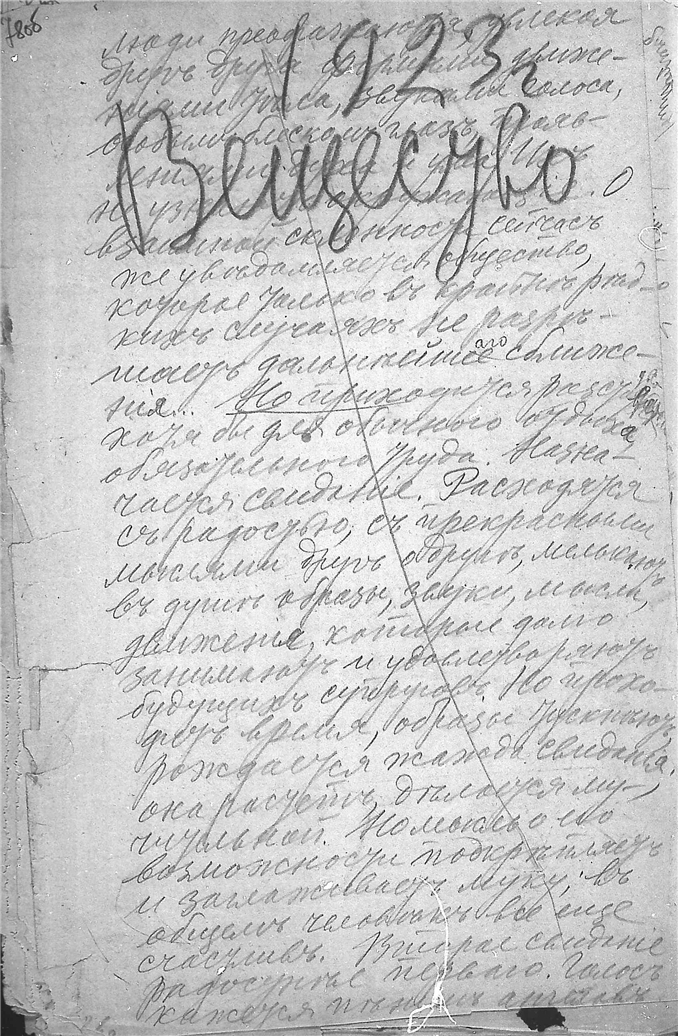 780б
1923г
Вещество
люди преображаются, увлекая
другъ друга формами, движе-
ніями тѣла, звуками голоса,
особымъ блескомъ глазъ, прояв-
леніями
взаимной склонности сейчасъ
же увѣдомляется общество,
которое только въ крайне рѣд-
кихъ случаяхъ не разрѣ-
шаетъ дальнѣйшаго сближе-
нія.. Но приходится
хотя бы для обычнаго отдыха
обязательнаго труда. Назна-
чается свиданіе. Расходятся
съ радостью, съ прекрасными
мыслями другъ о другѣ, мелькаютъ
въ душѣ образы, звуки, мысли,
движенія, которые долго
занимаютъ и удовлетворяютъ
будущихъ супруговъ. Но прохо-
дитъ время, образы тускнѣютъ,
рождается жажда свиданья,
она растетъ, дѣлается му-
чительной. Но мысль о его
возможности подкрѣпляетъ
и заглаживаетъ муку; въ
общемъ человѣкъ все еще
счастливъ. Второе свиданіе
радостнѣе перваго. Голосъ
кажется пѣніемъ ангеловъ